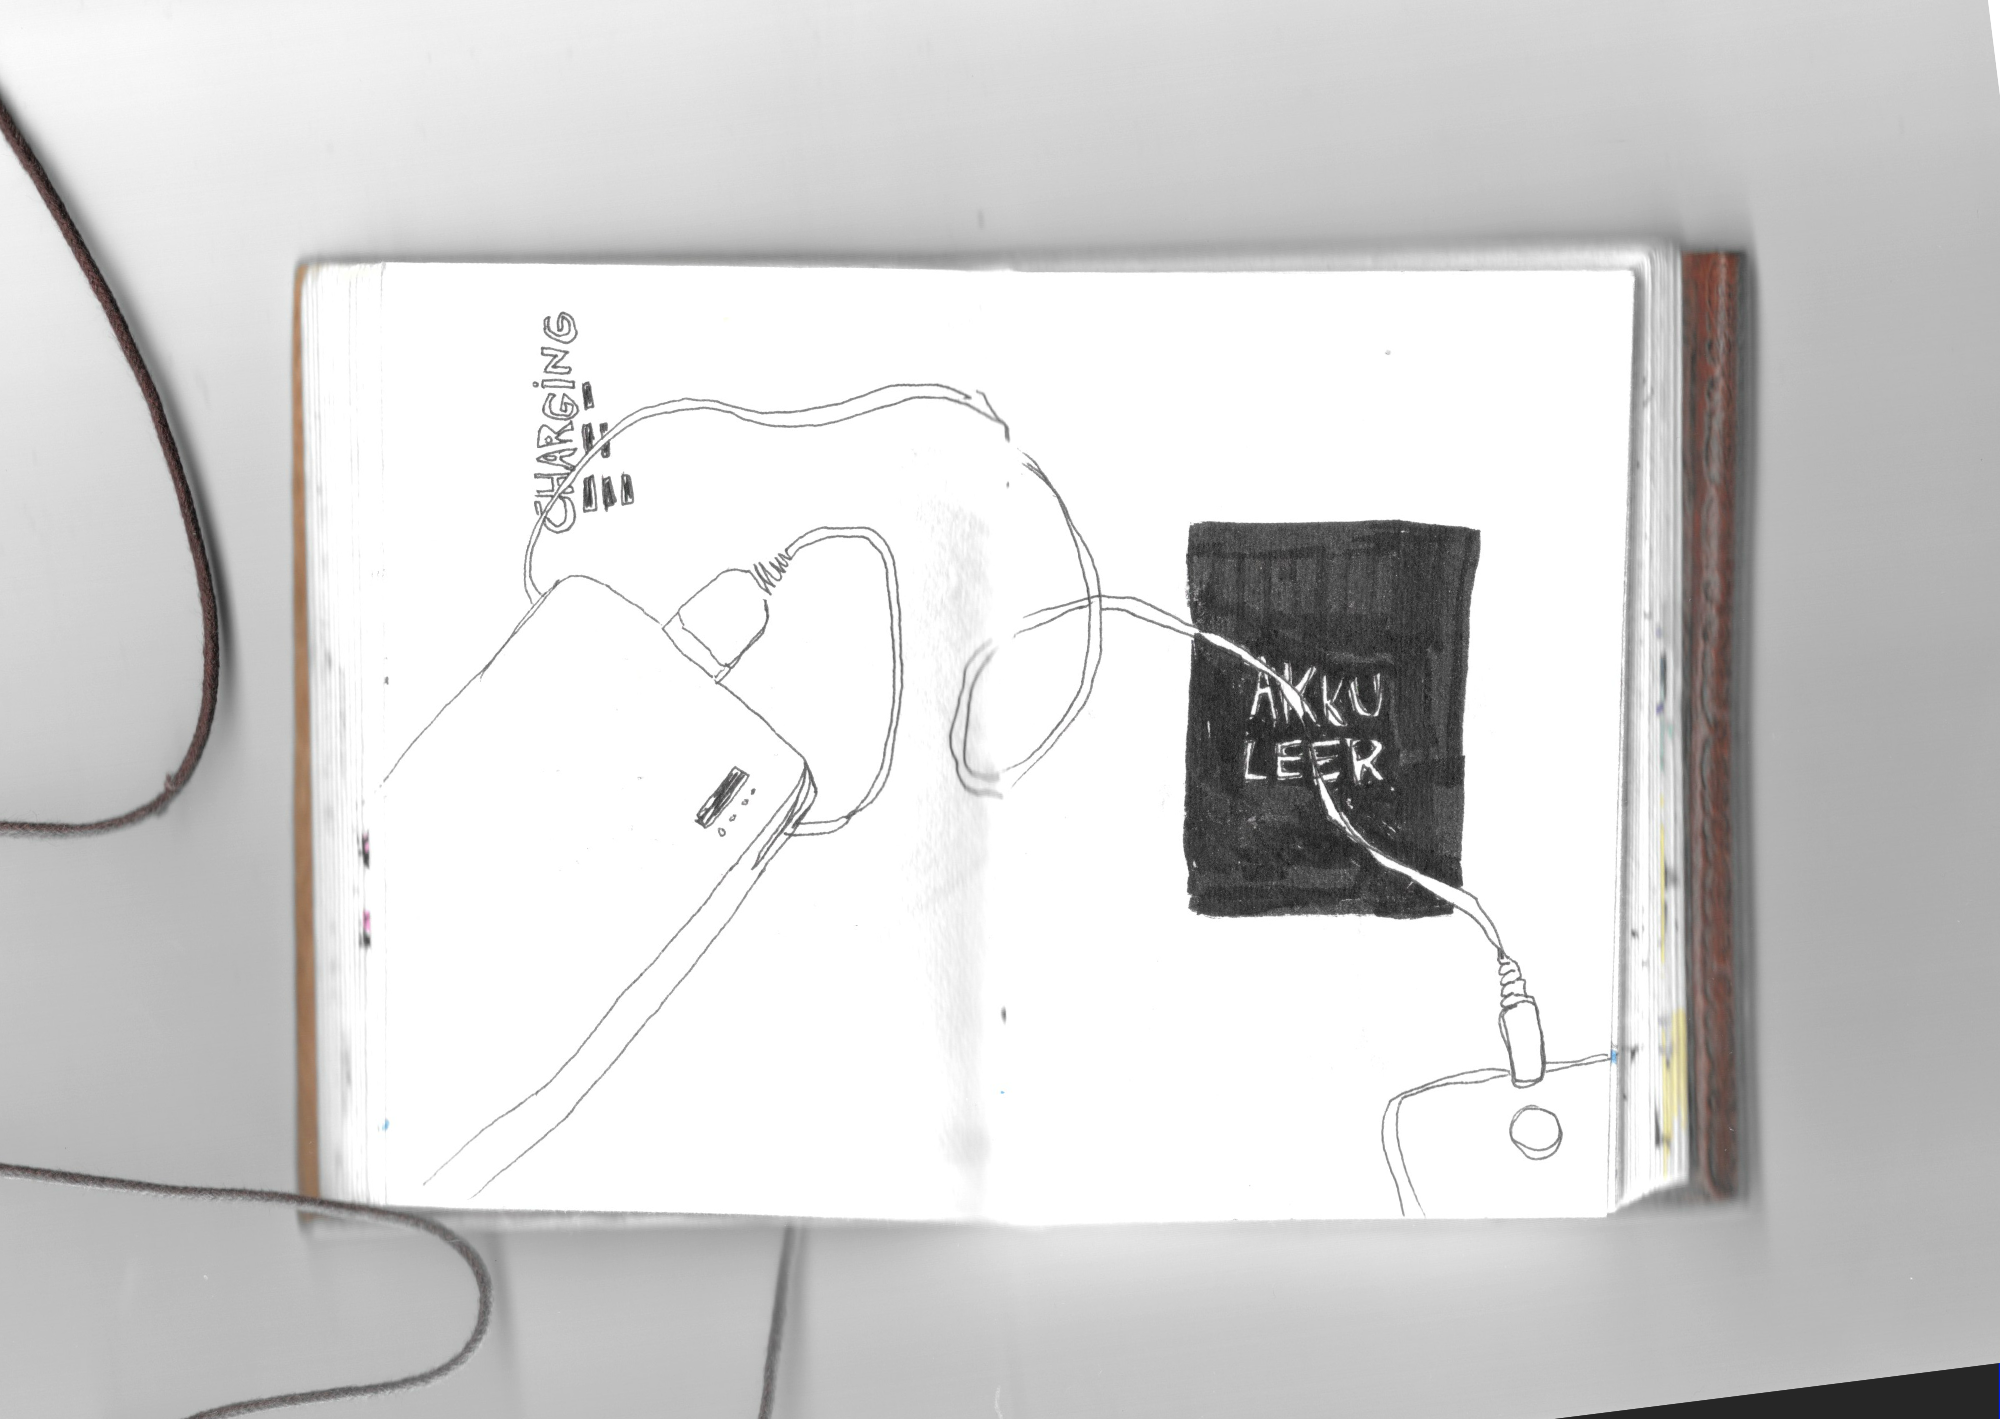 CHARGING
AKKU
LEER